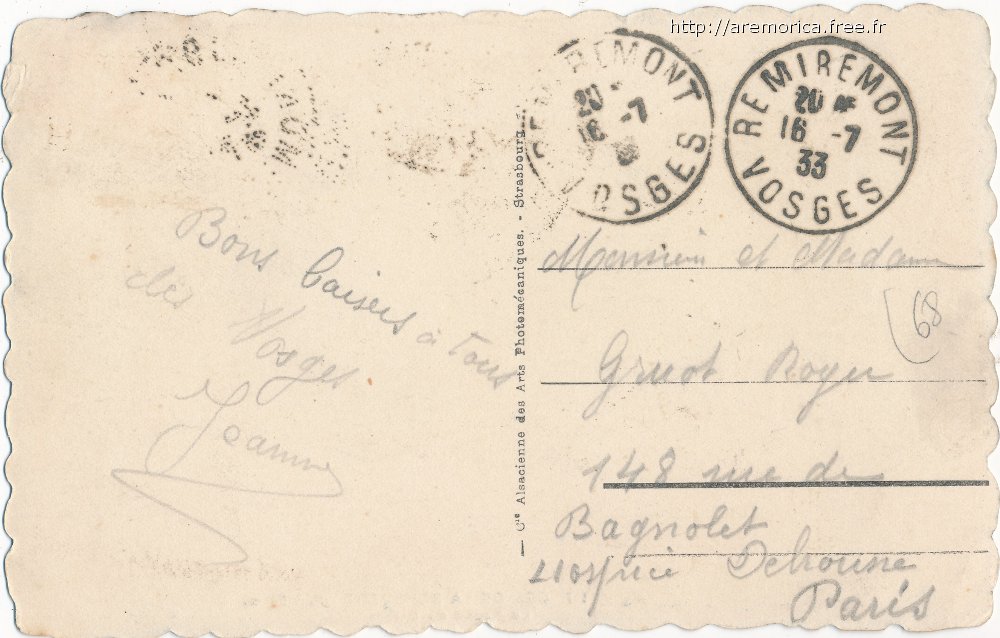 http://aremorica.free.fr
REMIREMONT
20
16 -7
VOSGES
REMIREMONT
20
16 -7
33
VOSGES
Bons baisers à tous
des Vosges
Jeanne
Cie Alsacienne des Arts Photomécaniques. - Strasbourg.
Monsieur et Madame
68
Gruot Roger
148 rue de
Bagnolet
Hospice Debrousse
Paris